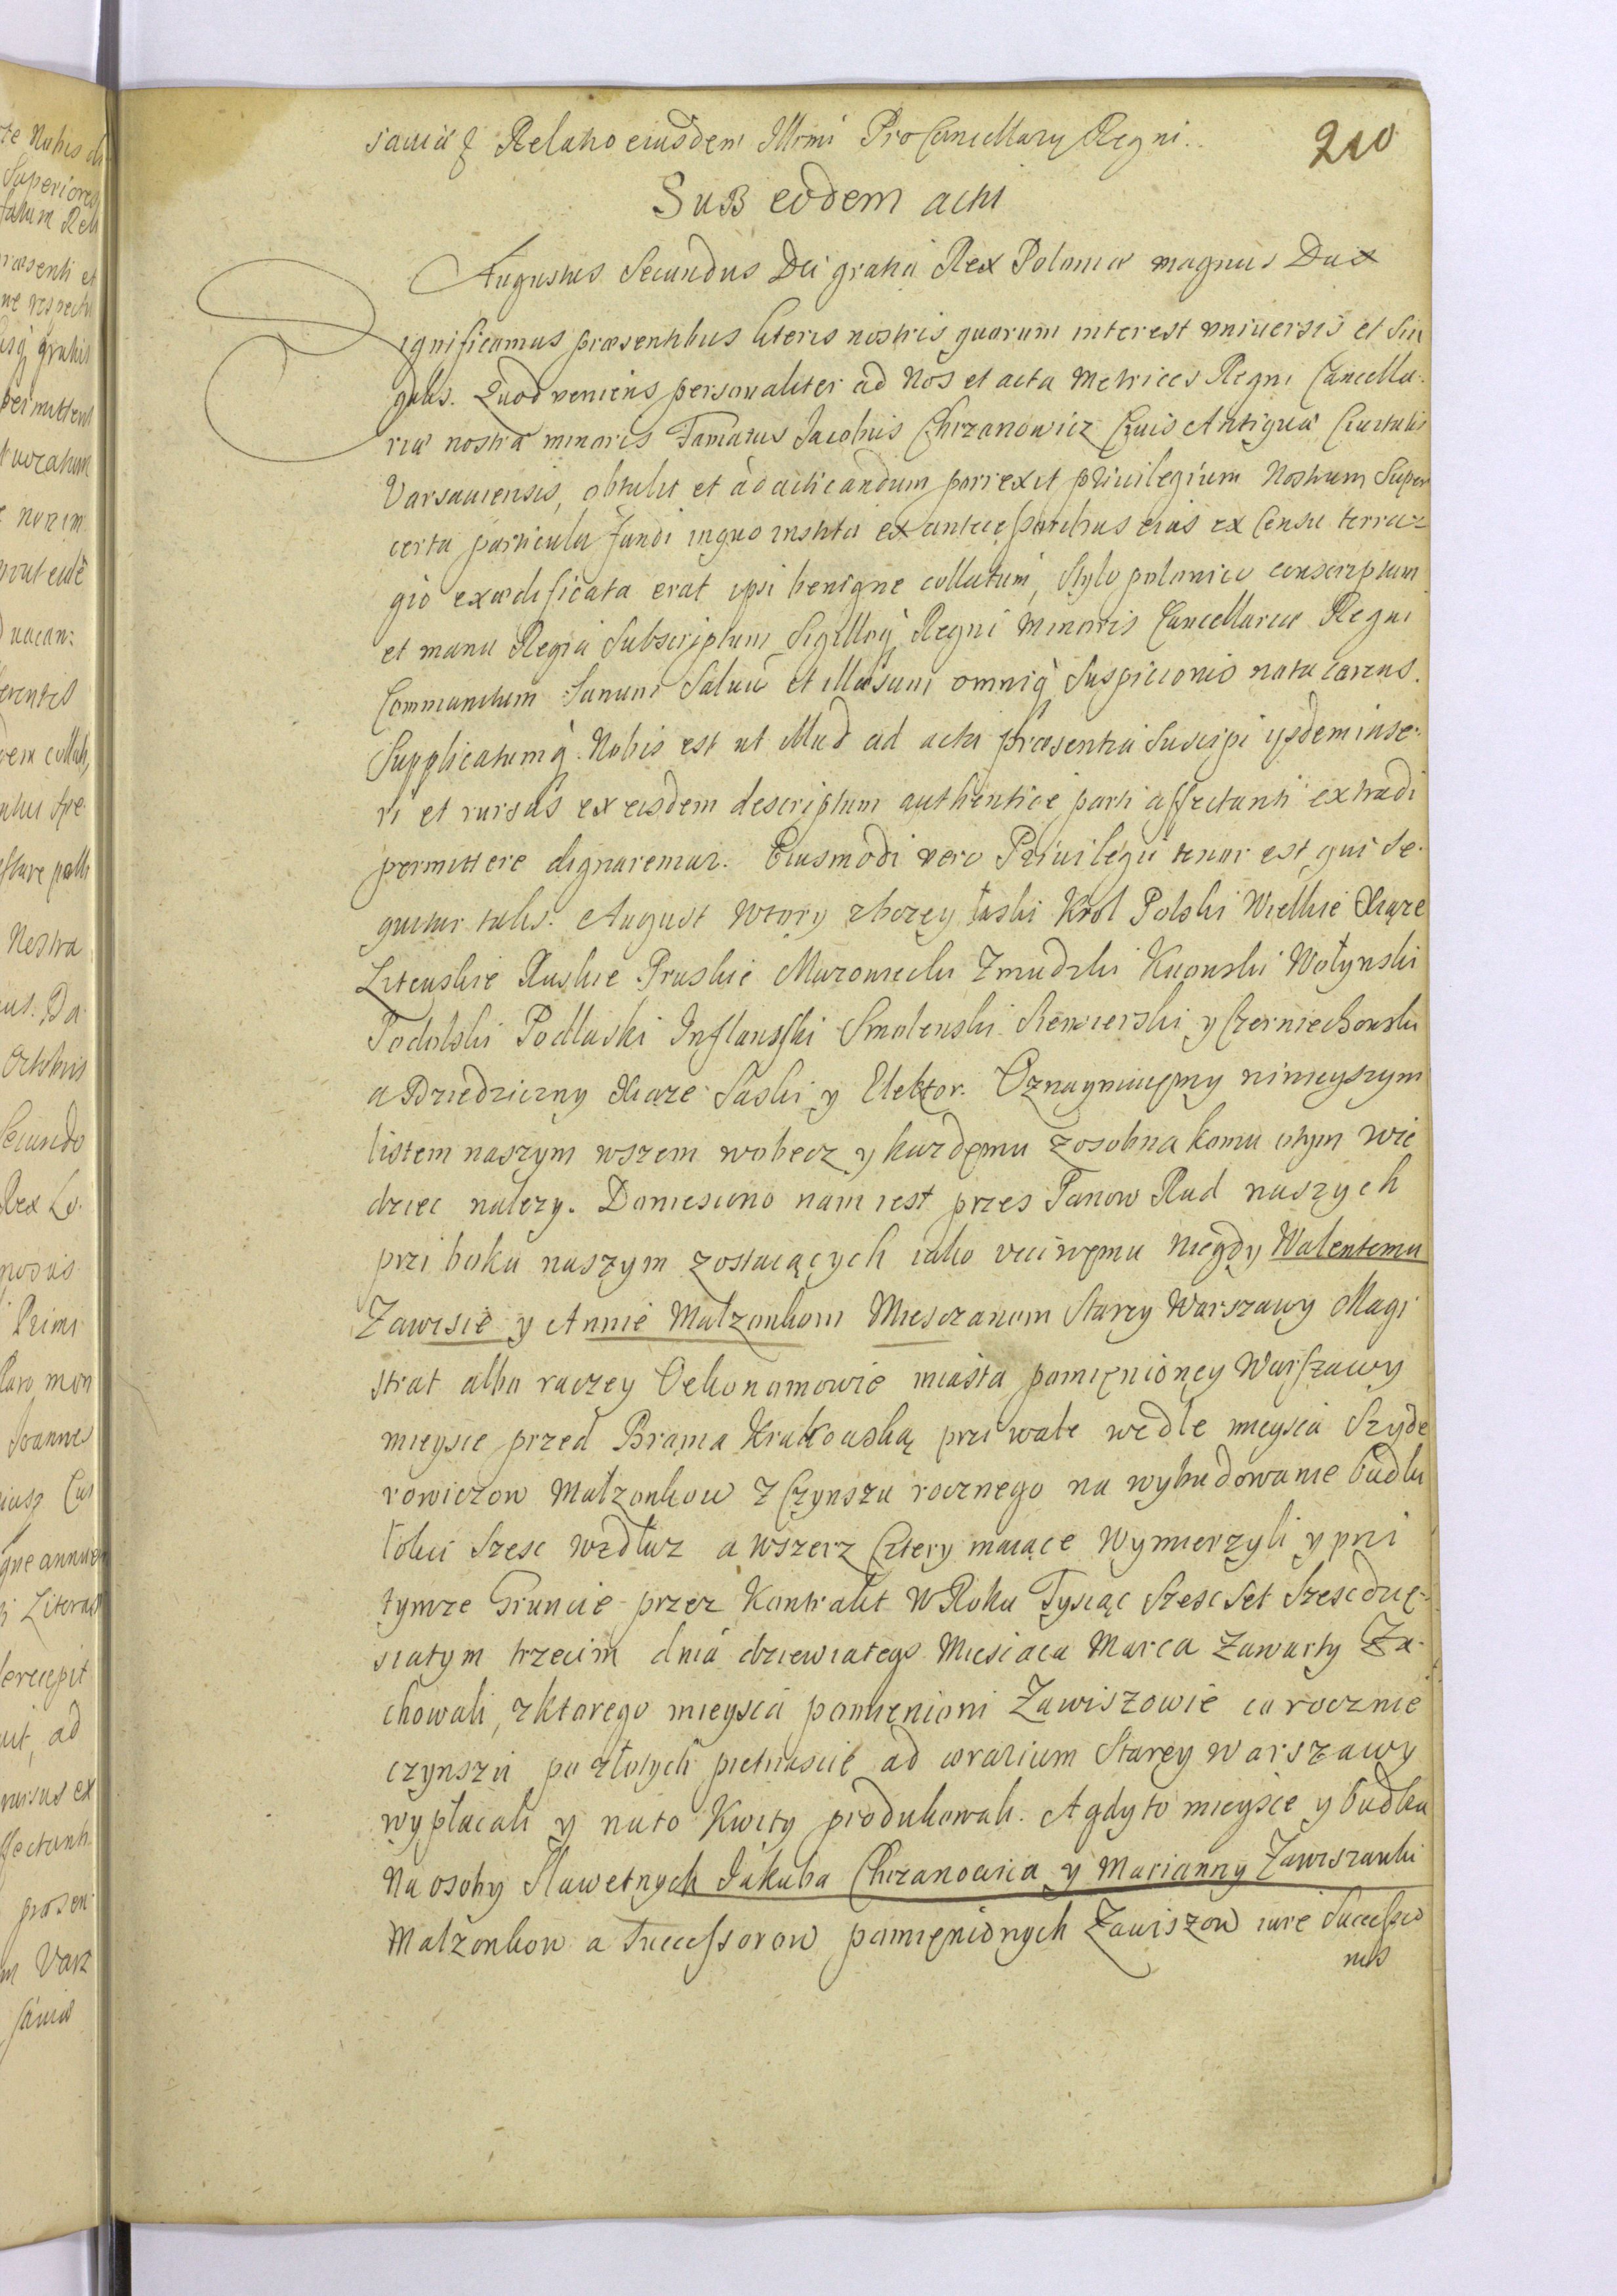 saviæ & Relatio eiusdem Illmi ProCancellary Regni..
210
Sub eodem actu
Augustus Secundus Dei gratia Rex Poloniæ magnus Dux
Significamus præsentibus literis nostris quorum interest vniuersis et sin
gulis. Quod veniens personaliter ad Nos et acta Metrices Regni Cancella-
riæ nostræ minoris Famatus Jacobus Chrzanowicz Ciuis Antiquæ Ciuitatis
Varsauiensis, obtulit et ad acticandum porrexit priuilegium Nostrum Super
certa particula fundi in quo instita ex antecessoribus eius ex Censu terraz
gio exædificata erat ipsi benigne collatum, stylo polonico conscriptum
et manu Regia Subscriptum Sigilloq Regni Minoris Cancellariæ Regni
Communitum Sanum Saluū et illæsum omniq Suspicionis nota carens.
Supplicatumq Nobis est ut illud ad acta præsentia Suscipi ysdem inse-
ri et rursus ex eisdem descriptum authentice parti affectanti extradi
permittere dignaremur. Eiusmodi vero Priuilegii tenor est qui se-
quitur talis. August wtory zbozey łaski Krol Polski Wielkie Xiąze
Litewskie Ruskie Pruskie Mazowiecki Zmudzki Kiiowski Wołynski
Podolski Podlaski Inflansski Smolenski Siewierski y Czerniechowski
a Dziedziczny Xiąze Saski y Elektor. Oznaymuięmy ninieyszym
listem naszym wszem wobecz y kazdęmu zosobna komu otym wie
dziec nalezy. Doniesiono nam iest przes Panow Rad naszych
przi boku naszym zostaiących iako vcciwęmu niegdy Walentemu
Zawisie y Annie Małzonkom Miesczanom Starey Warszawy Magi
strat albo raczey Oekonomowie miasta pomięnionęy Warszawy
mieysce przed Brama Krakowską przi wale wedle mieysca Szyde
rowiczow Małzonkow z Czynszu rocznego na wybudowanie budki
łokci szesc wzdłuz a wszerz Cztery maiące wymierzyli y przi
tymze Gruncie przez Kontrakt w Roku Tysiąc szesc set szescdzię-
siatym trzecim dnia dziewiatego Miesiaca Marca zawarty Za-
chowali, z ktorego mieysca pomięnioni Zawiszowie co rocznie
czynszu po złotych pietnascie ad ærarium Starey Warszawy
wypłacali y na to Kwity produkowali. A gdy to mieysce y budka
Na osoby Sławetnych Jakuba Chrzanowica y Marianny Zawiszanki
Małzonkow a Successorow pomięnionych Zawiszow iure Successio
nis